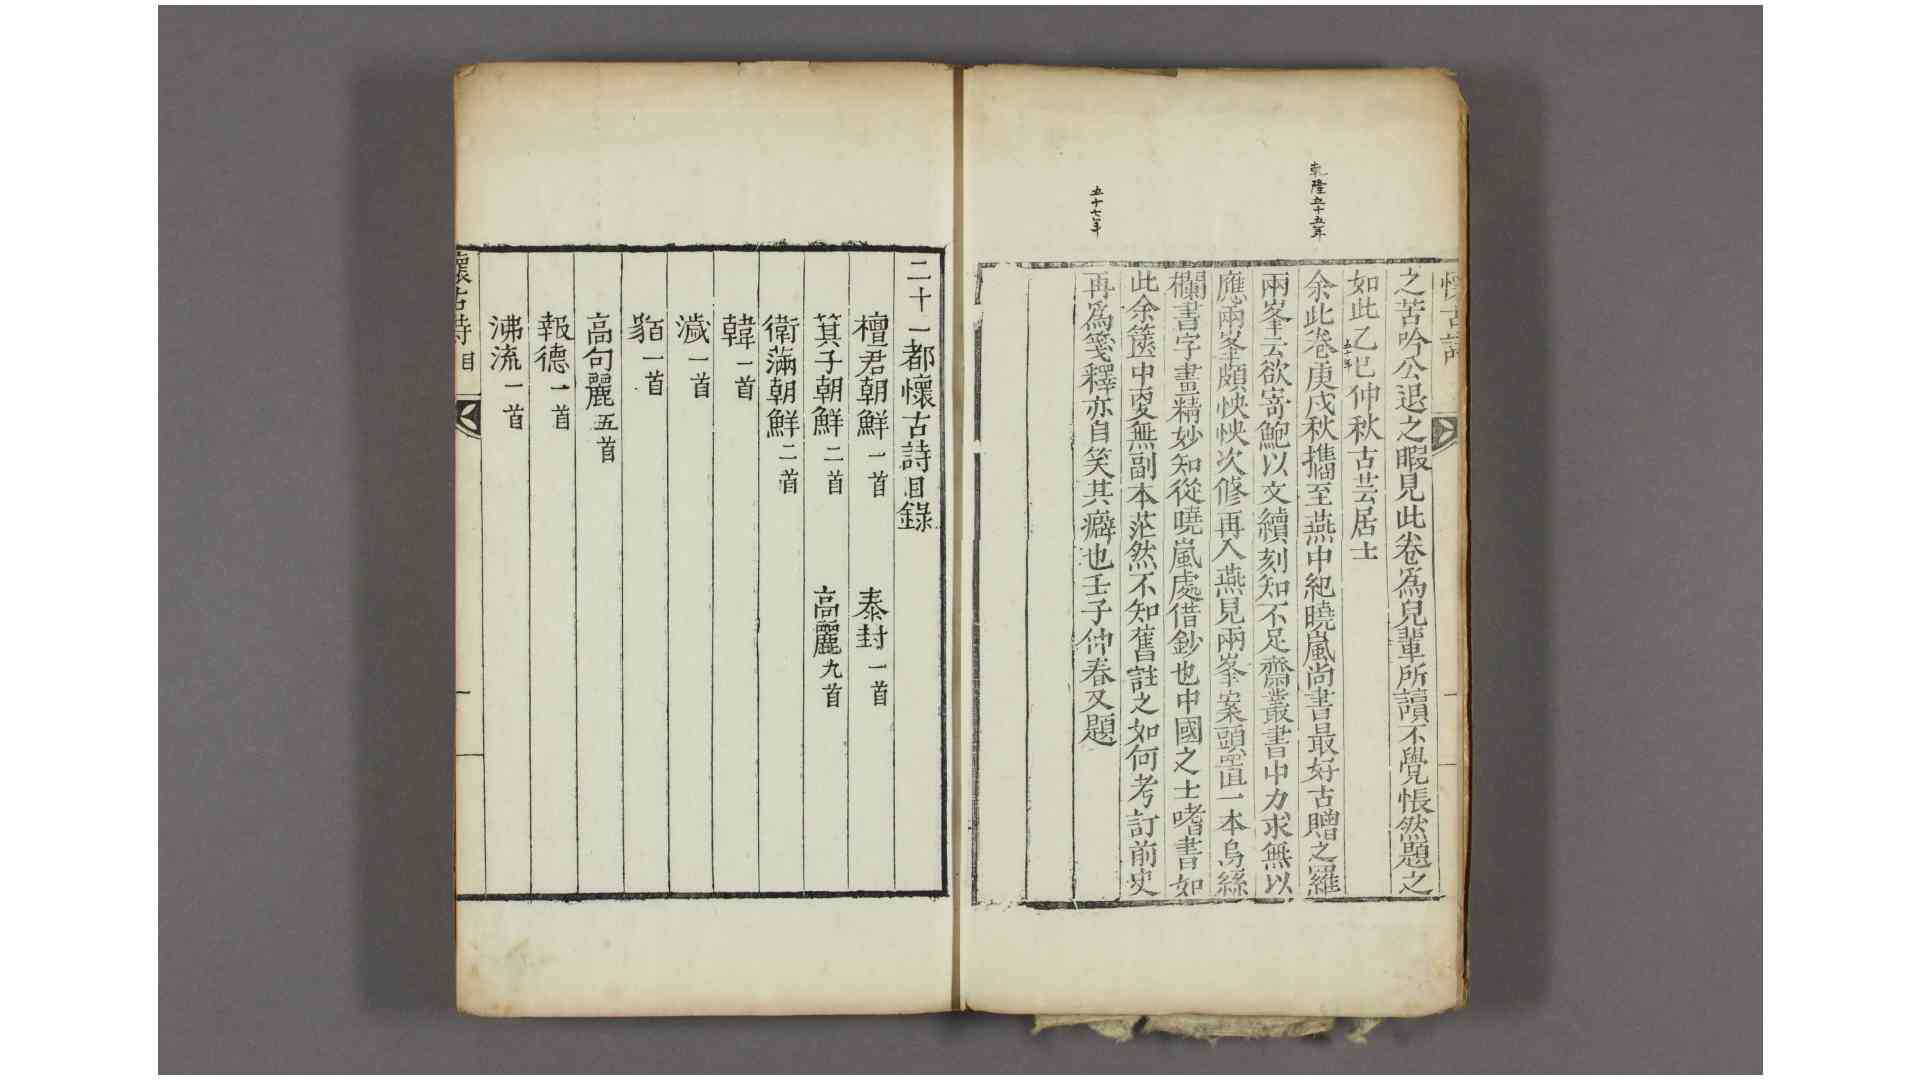 懷古詩
之苦吟公退之暇見此卷爲兒輩所讀不覺悵然題之
如此乙巳仲秋古芸居士
五十年
乾隆五十五年
余此卷庚戌秋攜至燕中紀曉嵐尚書最好古贈之羅
兩峯云欲寄鮑以文續刻知不足齋叢書中力求無以
應兩峯頗怏怏次修再入燕見兩峯案頭置一本烏絲
欄書字畫精妙知從曉嵐處借鈔也中國之士嗜書如
此余篋中夏無副本茫然不知舊註之如何考訂前史
五十七年
再爲箋釋亦自笑其癖也壬子仲春又題
二十一都懷古詩目錄
檀君朝鮮一首 泰封一首
箕子朝鮮二首 高麗九首
衛滿朝鮮二首
韓一首
濊一首
貊一首
高句麗五首
報德一首
沸流一首
懷古詩 目 一